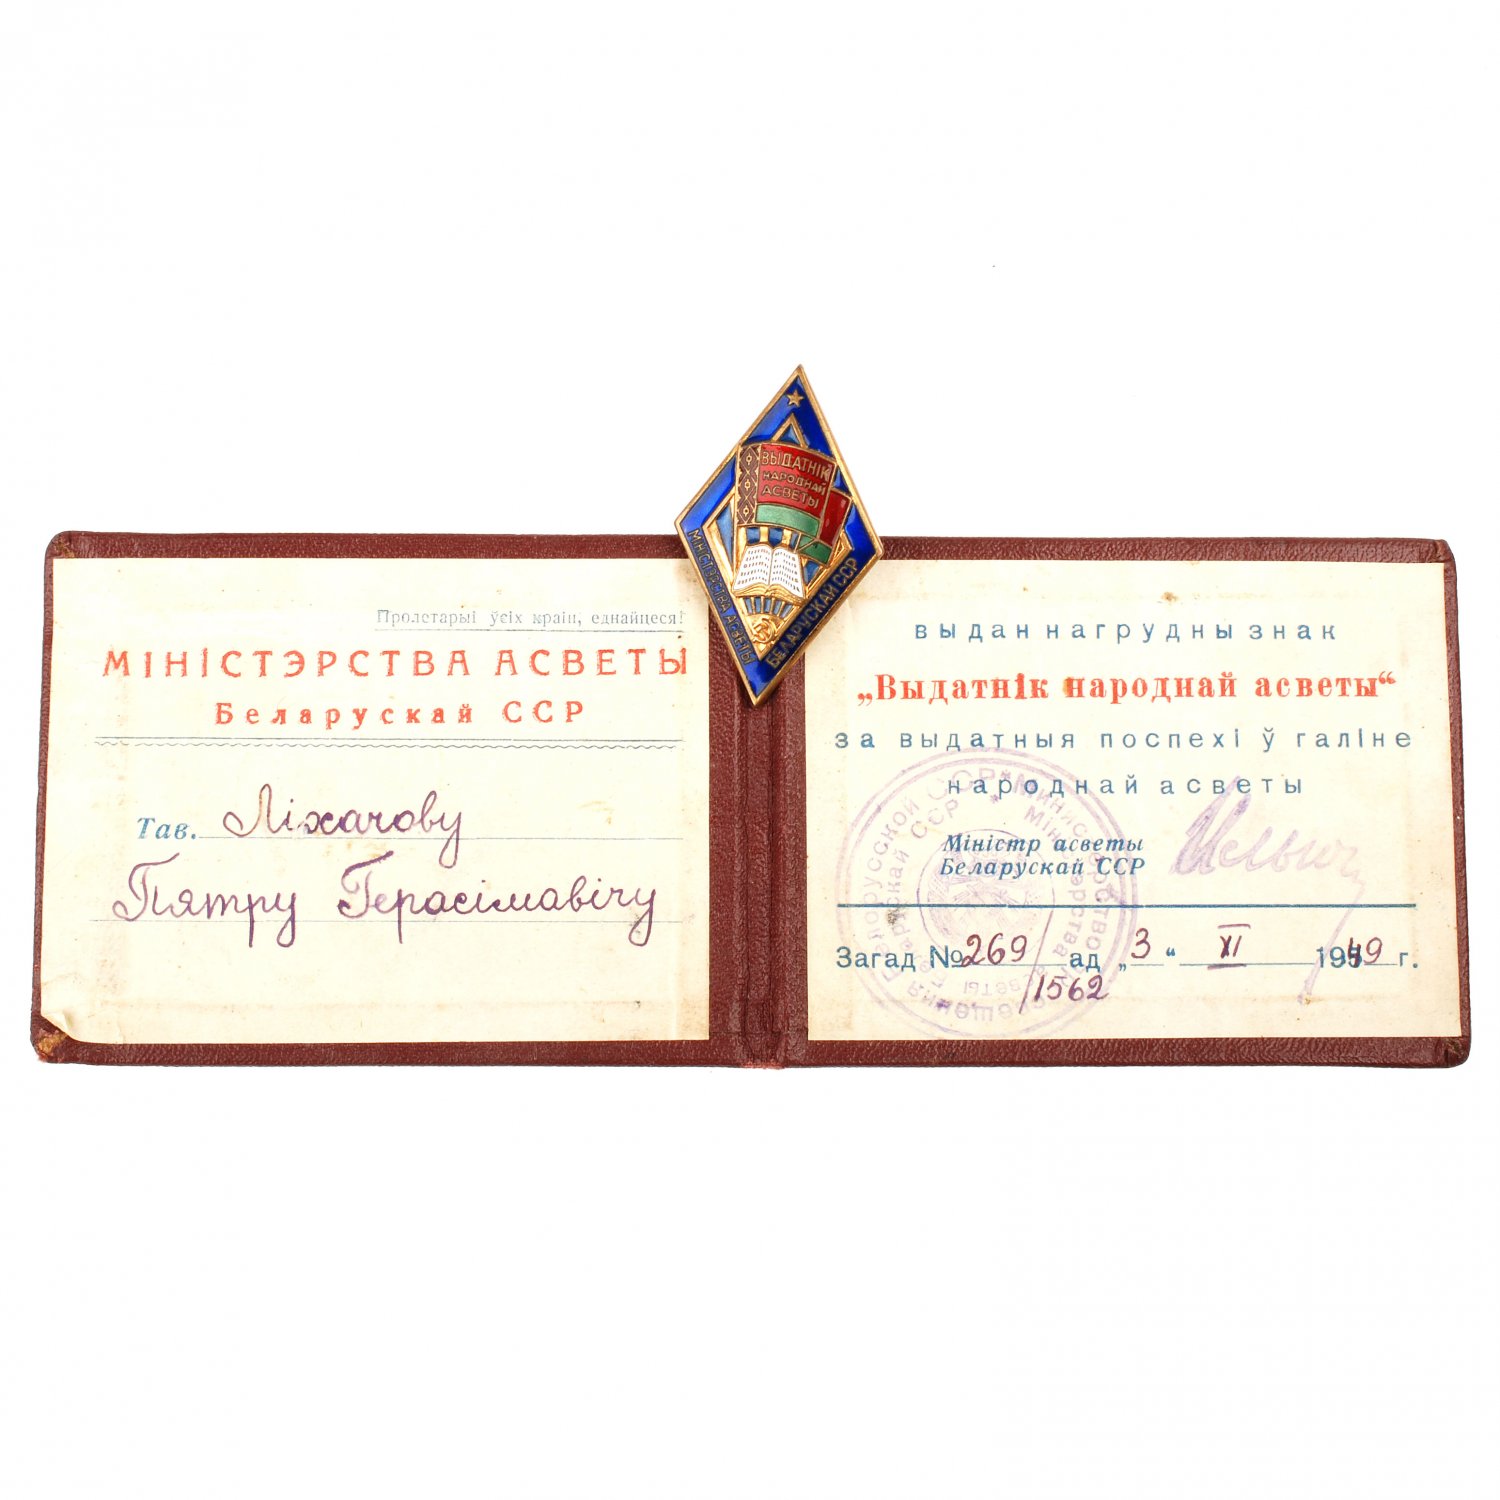 ВЫДАТНІК
НАРОДНАЙ
АСВЕТЫ
МІНІСТЭРСТВА АСВЕТЫ
БЕЛАРУСКАЙ ССР
Пролетарыі ўсіх краін, еднайцеся!
МІНІСТЭРСТВА АСВЕТЫ
Беларускай ССР
Тав. Ліхачову
Пятру Герасімавічу
выдан нагрудны знак
„Выдатнік народнай асветы“
за выдатныя поспехі ў галіне
народнай асветы
Міністр асветы
Беларускай ССР
Загад № 269/1562 ад „3“ XI 1949 г.